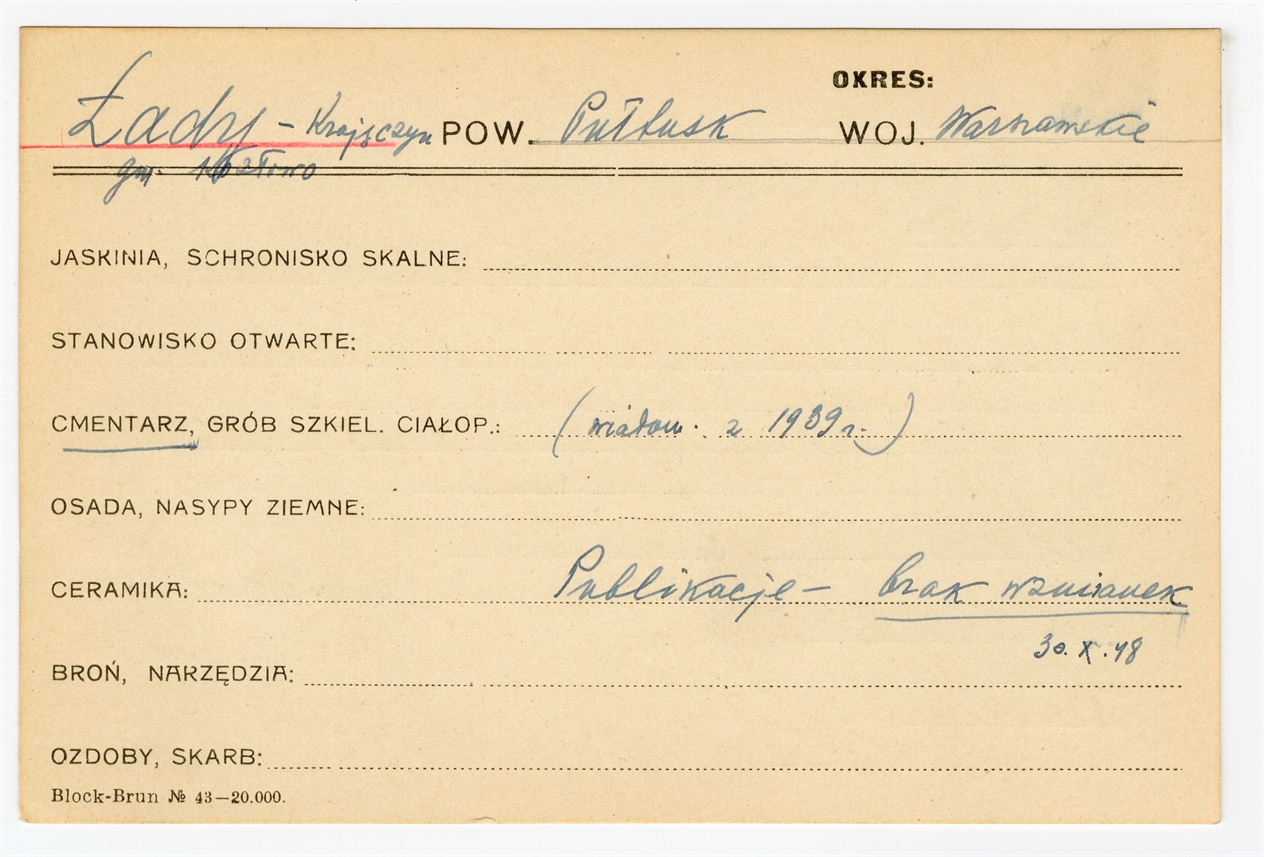 OKRES:
Łady - Krajęczyn POW. Pułtusk WOJ. Warszawskie
gm. Kozłowo
JASKINIA, SCHRONISKO SKALNE:
STANOWISKO OTWARTE:
CMENTARZ, GRÓB SZKIEL. CIAŁOP.: (wiadom. z 1939 r.)
OSADA, NASYPY ZIEMNE:
CERAMIKA: Publikacje - brak wzmianek
30. X. 48
BROŃ, NARZĘDZIA:
OZDOBY, SKARB:
Block-Brun № 43—20.000.